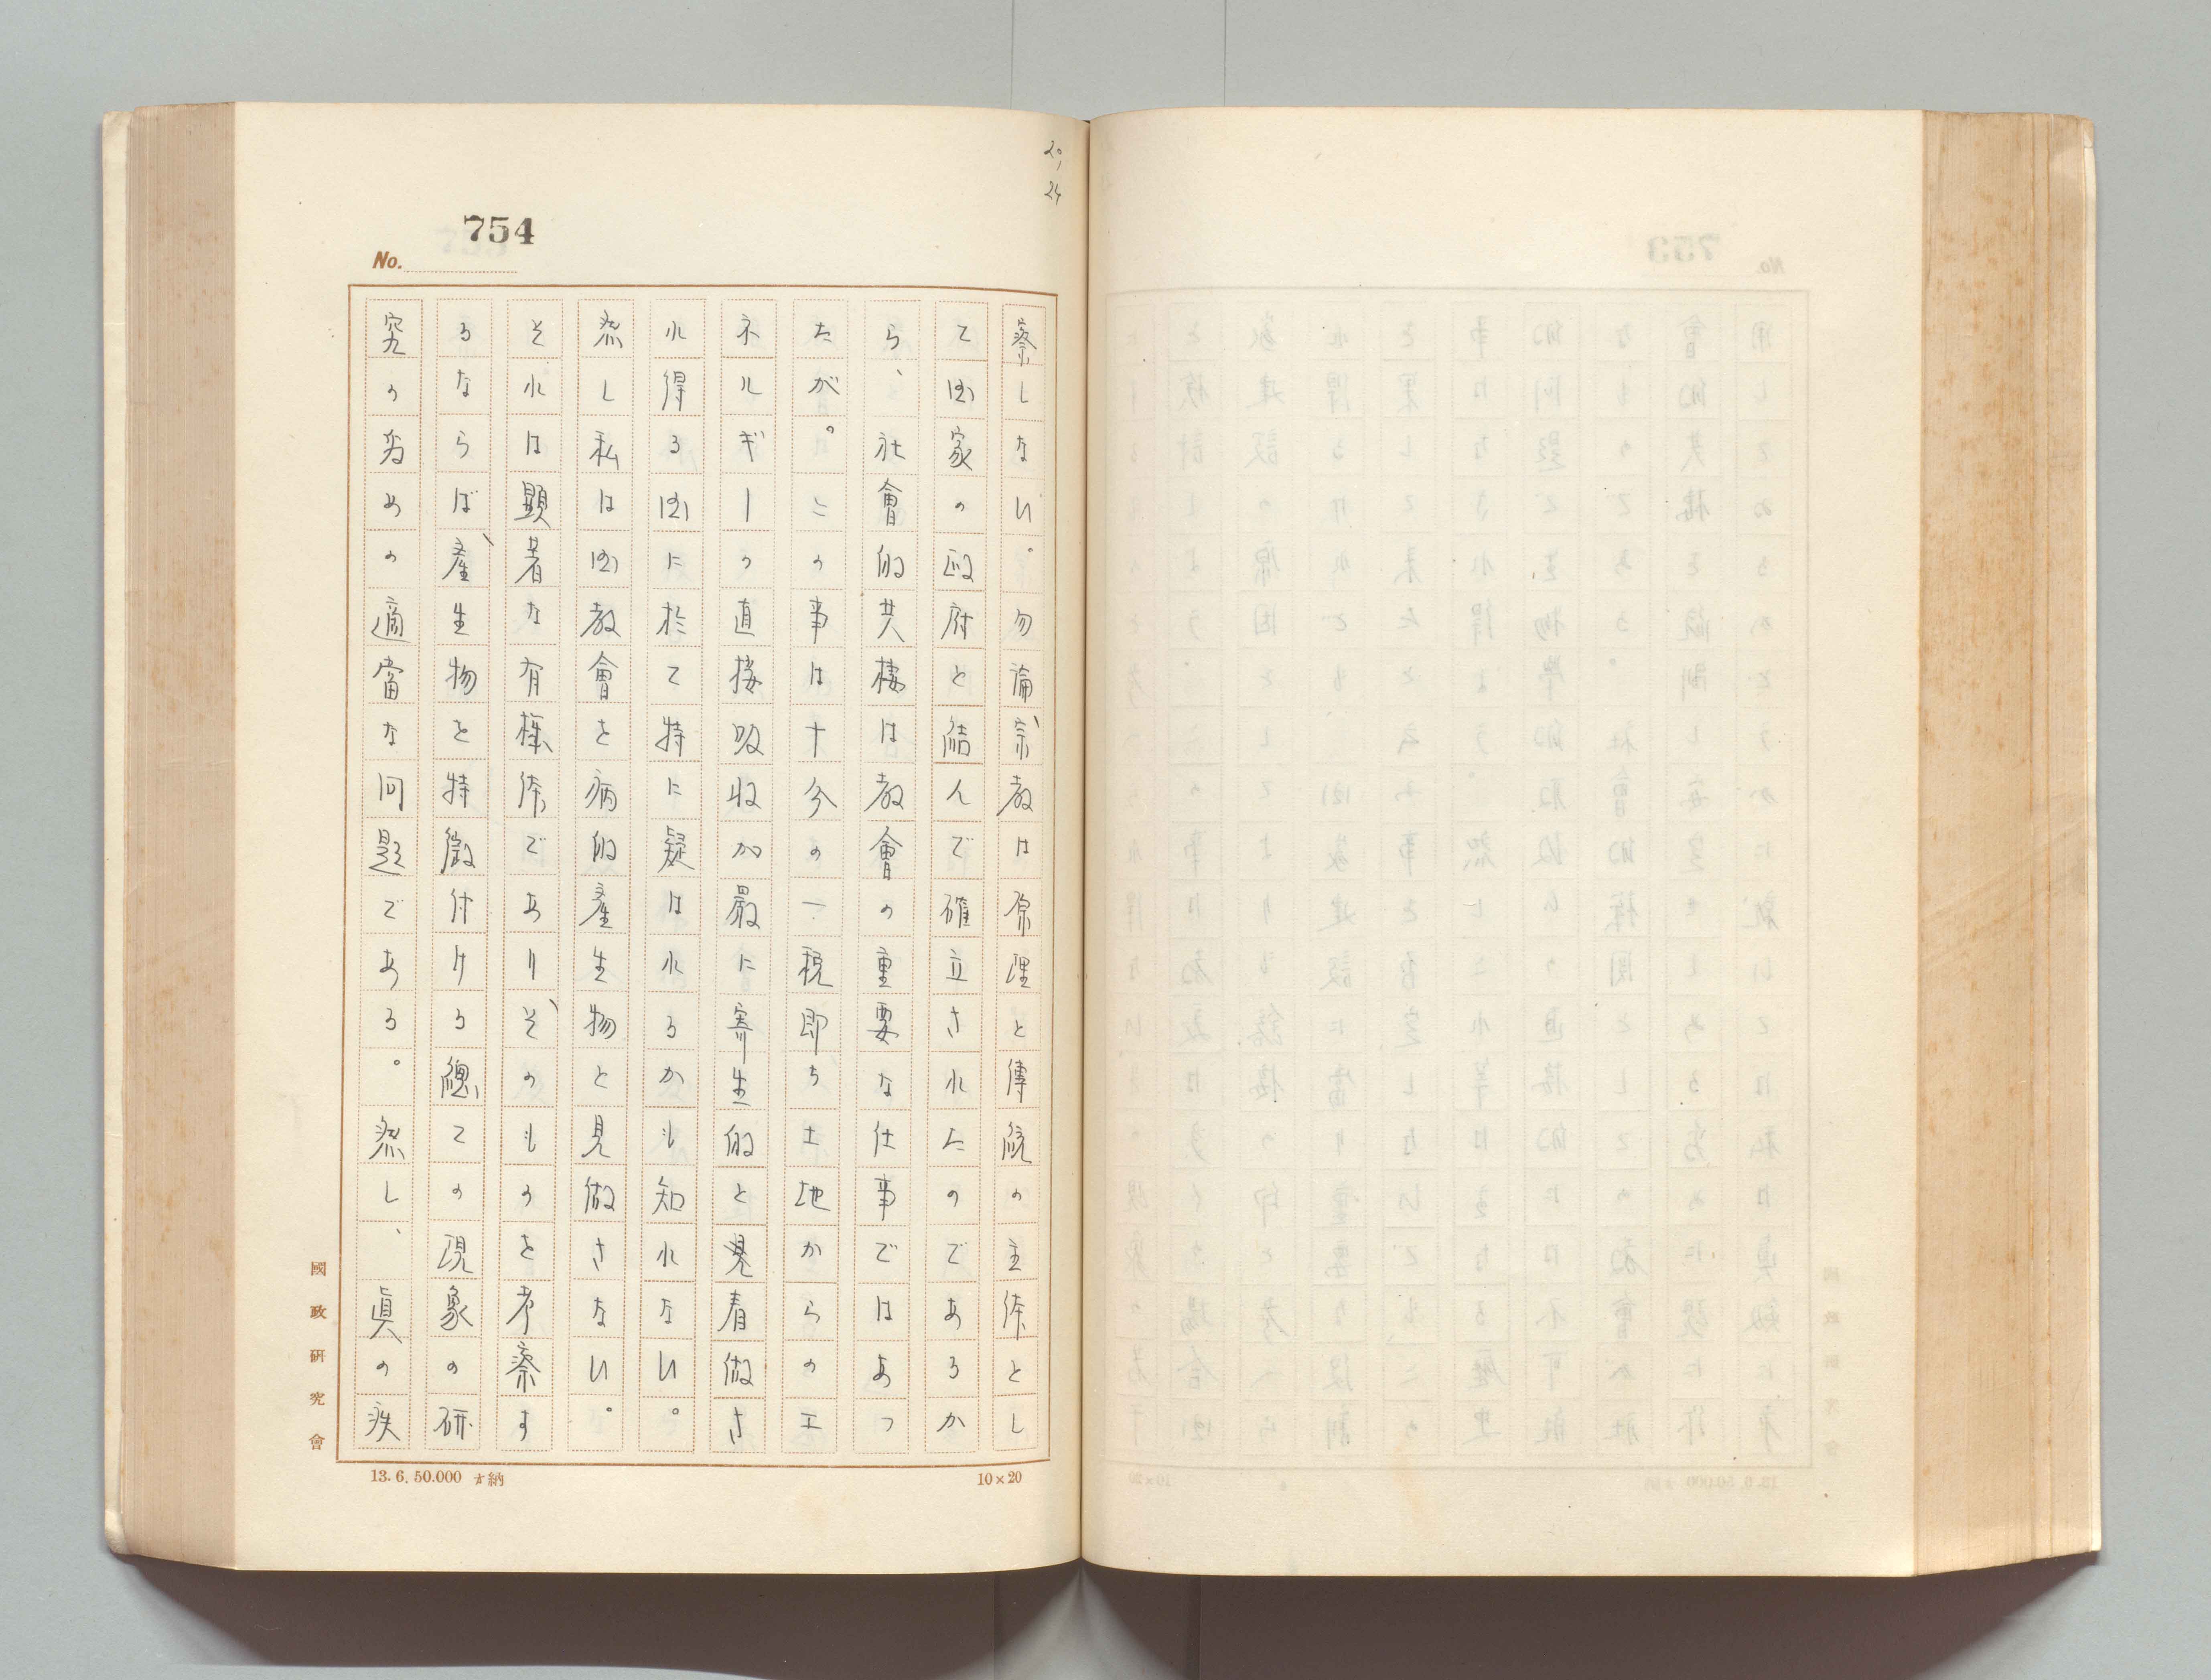 20,
24
754
No.
察しない。勿論、宗教は原理と傳統の主体とし
て国家の政府と結んで確立されたのであるか
ら、社會的共棲は教會の重要な仕事ではあつ
たが。この事は十分の一税即ち土地からのエ
ネルギーの直接吸收が嚴に寄生的と見做さ
れ得る国に於て特に疑はれるかも知れない。
然し私は国教會を病的產生物と見做さない。
それは顯著な有機体であり、そのものを考察す
るならば、產生物を特徴付ける總ての現象の研
究の為めの適當な問題である。然し、眞の疾
國政研究會
13.6.50.000 ヰ納
10×20